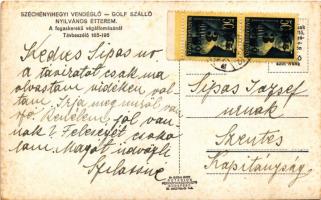 SZÉCHENYIHEGYI VENDÉGLŐ — GOLF SZÁLLÓ
NYILVÁNOS ÉTTEREM.
A fogaskerekű végállomásánál
Távbeszélő 165-195
Kedves Sipos úr
a táviratot csak ma
olvastam vidéken vol-
tam. Írja meg miről van
szó. Remélem, jól van-
nak? Feleségét csóko-
lom. Magát üdvözli
Szilasiné
Sipos József
úrnak
Szentes
Kapitányság